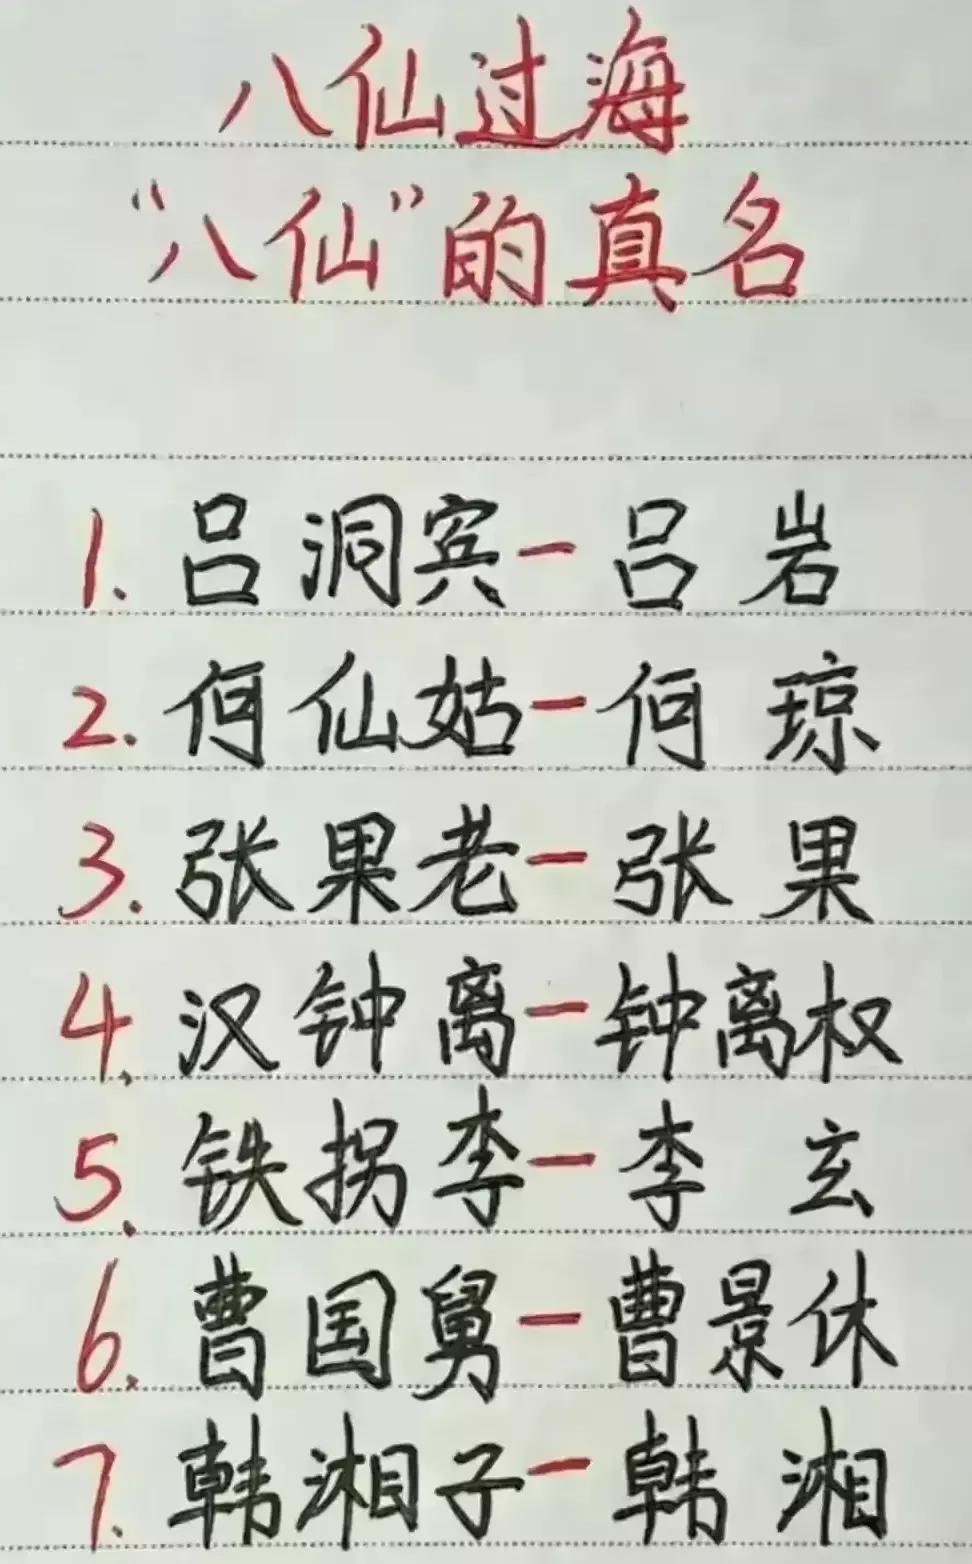 八仙过海
“八仙”的真名
1. 吕洞宾－吕岩
2. 何仙姑－何琼
3. 张果老－张果
4. 汉钟离－钟离权
5. 铁拐李－李玄
6. 曹国舅－曹景休
7. 韩湘子－韩湘